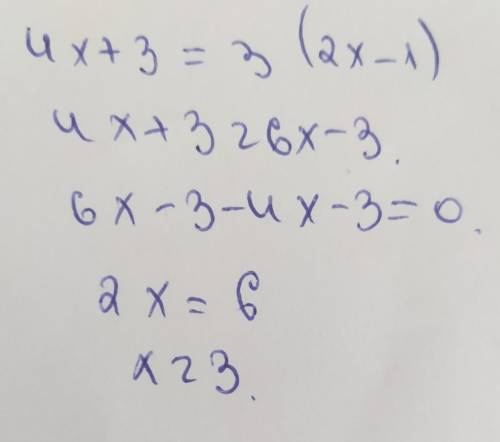 4x+3=3(2x-1)
4x+3=6x-3.
6x-3-4x-3=0.
2x=6
x=3.